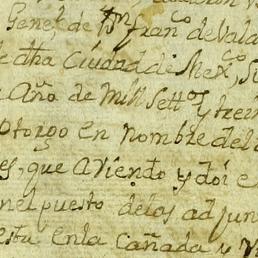 Genel de Dn Franco de Vala
dha Ciudad de Mexco, s
Año de Mill Settos y trein
otorgo en nombre del
es, que aviendo y doi e
nel puesto delos adjun
esta enla Cañada y